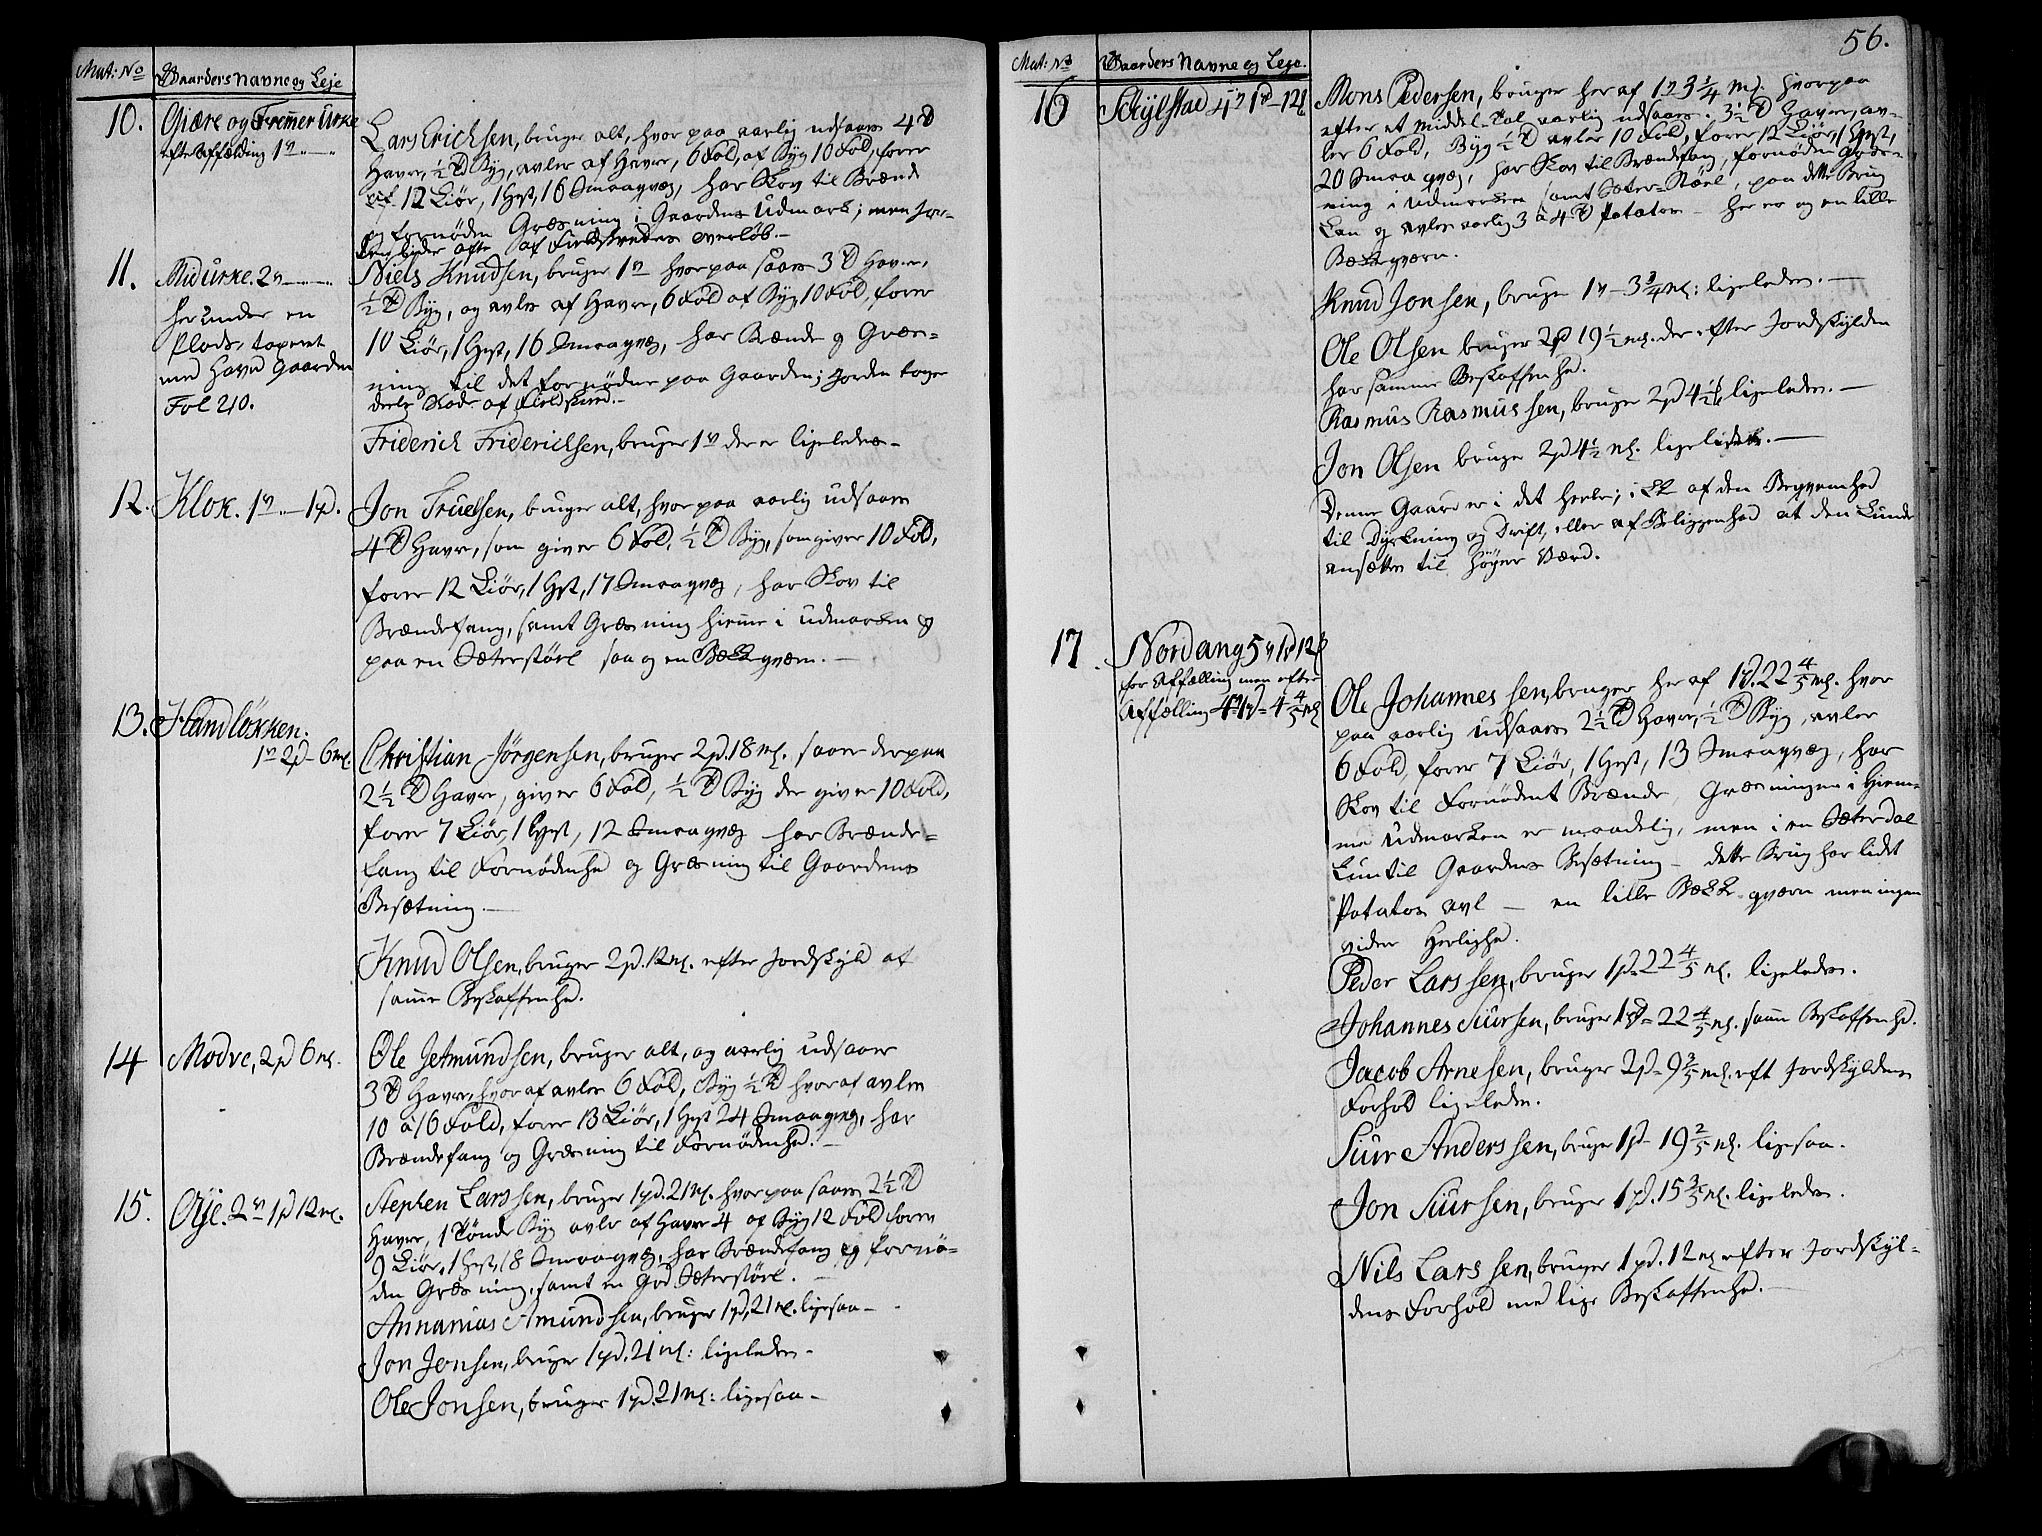 Mat: No
Gaarders Navne og Leje
10.
Giære og Fremer Urke
efter Affælding 1 v
Lars Erichsen, bruger alt, hvor paa aarlig udsaaes 4 Td
Havre, ½ Td Byg, avler af Havre, 6 Fold, af Byg 10 Fold, foder
12 Kiør, 1 Hest, 16 Smaaqvæg, har Skov til Brænde
og fornøden Græsning i Gaardens Udmark; men Jor-
den lider ofte af Fieldskredes Overløb.
11.
Mid urke. 2 v
herunder en
Plads, taxeret
med Havn Gaarden
Fol 210.
Niels Knudsen, bruger 1 v hvorpaa saaes 3 Td Havre,
½ Td Byg, og avler af Havre, 6 Fold af Byg 10 Fold, foder
10 Kiør, 1 Hest, 16 Smaaqvæg, har Brænde og Græs-
ning til det fornødne paa Gaarden; Jorden tager
deels Skade af Fieldskred.
Friderich Friderichsen, bruger 1 v der er ligeledes
12.
Klok. 1 v 1 pd.
Jon Truelsen, bruger alt, hvor paa aarlig udsaaes
4 Td Havre, som giver 6 Fold, ½ Td Byg, som giver 10 Fold,
foder 12 Kiør, 1 Hest, 17 Smaaqvæg, har Skov til
Brændefang, samt Græsning hiemme i Udmarken og
paa en Sæterstøel saa og en Bækqværn.
13.
Handløkken.
1 v 2 pd 6 mk.
Christian Jørgensen, bruger 2 pd. 18 mk. saaer derpaa
2½ Td Havre, giver 6 Fold, ½ Td Byg der giver 10 Fold,
foder 7 Kiør, 1 Hest, 12 Smaaqvæg har Brænde-
fang til Fornødenhed og Græsning til Gaardens
Besætning.
Knud Olsen, bruger 2 pd. 12 mk. efter Jordskyld af
samme Beskaffenhed.
14
Modve, 2 pd 6 mk.
Ole Jetmundsen, bruger alt, og aarlig udsaaer
3 Td Havre, hvoraf avles 6 Fold, Byg ½ Td hvoraf avles
10 à 16 Fold, foder 13 Kiør, 1 Hest 24 Smaaqvæg, har
Brændefang og Græsning til Fornødenhed.
15.
Øye. 2 v 1 pd 12 mk.
Stephen Larssen, bruger 1 pd. 21 mk. hvorpaa saaes 2½ Td
Havre, 1 Tønde Byg avler af Havre 4 af Byg 12 Fold foder
9 Kiør, 1 Hest, 18 Smaaqvæg, har Brændefang og fornø-
den Græsning, samt en god Sæterstøel.
Annanias Amundsen, bruger 1 pd. 21 mk. ligesaa
Jon Jonsen, bruger 1 pd. 21 mk: ligeledes
Ole Jonsen, bruger 1 pd. 21 mk: ligesaa
56.
Mat: No
Gaarders Navne og Leje.
16
Schylstad 4 v 1 pd 12
Mons Pedersen, bruger her af 1 2 3¾ mk. hvorpaa
efter et middel-Tal aarlig udsaaes 3½ Td Havre, av-
ler 6 Fold, Byg ½ Td avler 10 Fold, foder 12 Kiør, 1 Hest,
20 Smaaqvæg, har Skov til Brændefang, fornøden Græs-
ning i Udmarken samt Sæter-Støel, paa dette Brug
kan og avles aarlig 3 à 4 Td Potatos - her er og en lille
Bækqværn.
Knud Jonsen, bruger 1 v 3¾ mk: ligeledes.
Ole Olsen bruger 2 pd 19½ mk. der efter Jordskylden
har samme Beskaffenhed.
Rasmus Rasmussen, bruger 2 pd 4½ ligeledes.
Jon Olsen bruger 2 pd 4½ mk. ligeledes.
Denne Gaard er i det heele, ikke af den Beqvemhed
til Dyrkning og Drift, eller af Beliggenhed at den kunde
ansættes til høyere Værd.
17.
Nordang 5 v 1 pd 12
før Affælling men efter
Affælling 4 v 1 pd 4⅘ mk
Ole Johannessen, bruger her af 1 pd. 22⅘ mk. hvor
paa aarlig udsaaes 2½ Td Havre, ½ Td Byg, avler
6 Fold, foder 7 Kiør, 1 Hest, 13 Smaaqvæg, har
Skov til Fornødent Brænde, Græsningen i Hiem-
me Udmarken er maadelig, men i en Sæterdal
kun til Gaardens Besætning - dette Brug har lidet
Potatos avl - en lille Bæk-qværn men ingen
videre Herlighed.
Peder Larssen, bruger 1 pd. 22⅘ mk. ligeledes.
Johannes Siursen, bruger 1 pd. 22⅘ mk. samme Beskaffenhed.
Jacob Arnesen, bruger 2 pd. 9⅗ mk. efter Jordskyldens
Forhold ligeledes.
Siur Anderssen, bruger 1 pd 19⅖ mk. ligesaa.
Jon Siursen, bruger 1 pd. 15⅗ mk. ligeledes.
Nils Larssen, bruger 1 pd. 12 mk efter Jordskyl-
dens Forhold med lige Beskaffenhed.